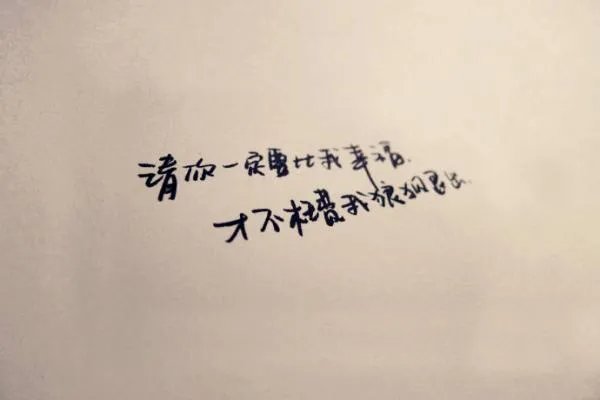 请你一定要比我幸福
才不枉费我狼狈退出